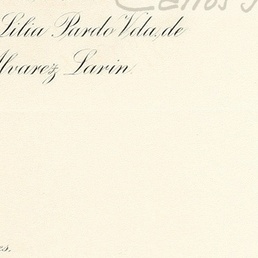 Carlos
Lilia Pardo Vda, de
Alvarez Larin